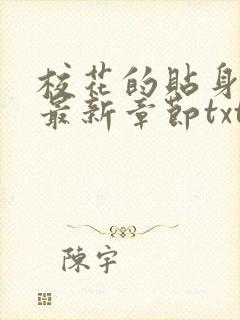 校花的貼身
最新章節txt
陳宇